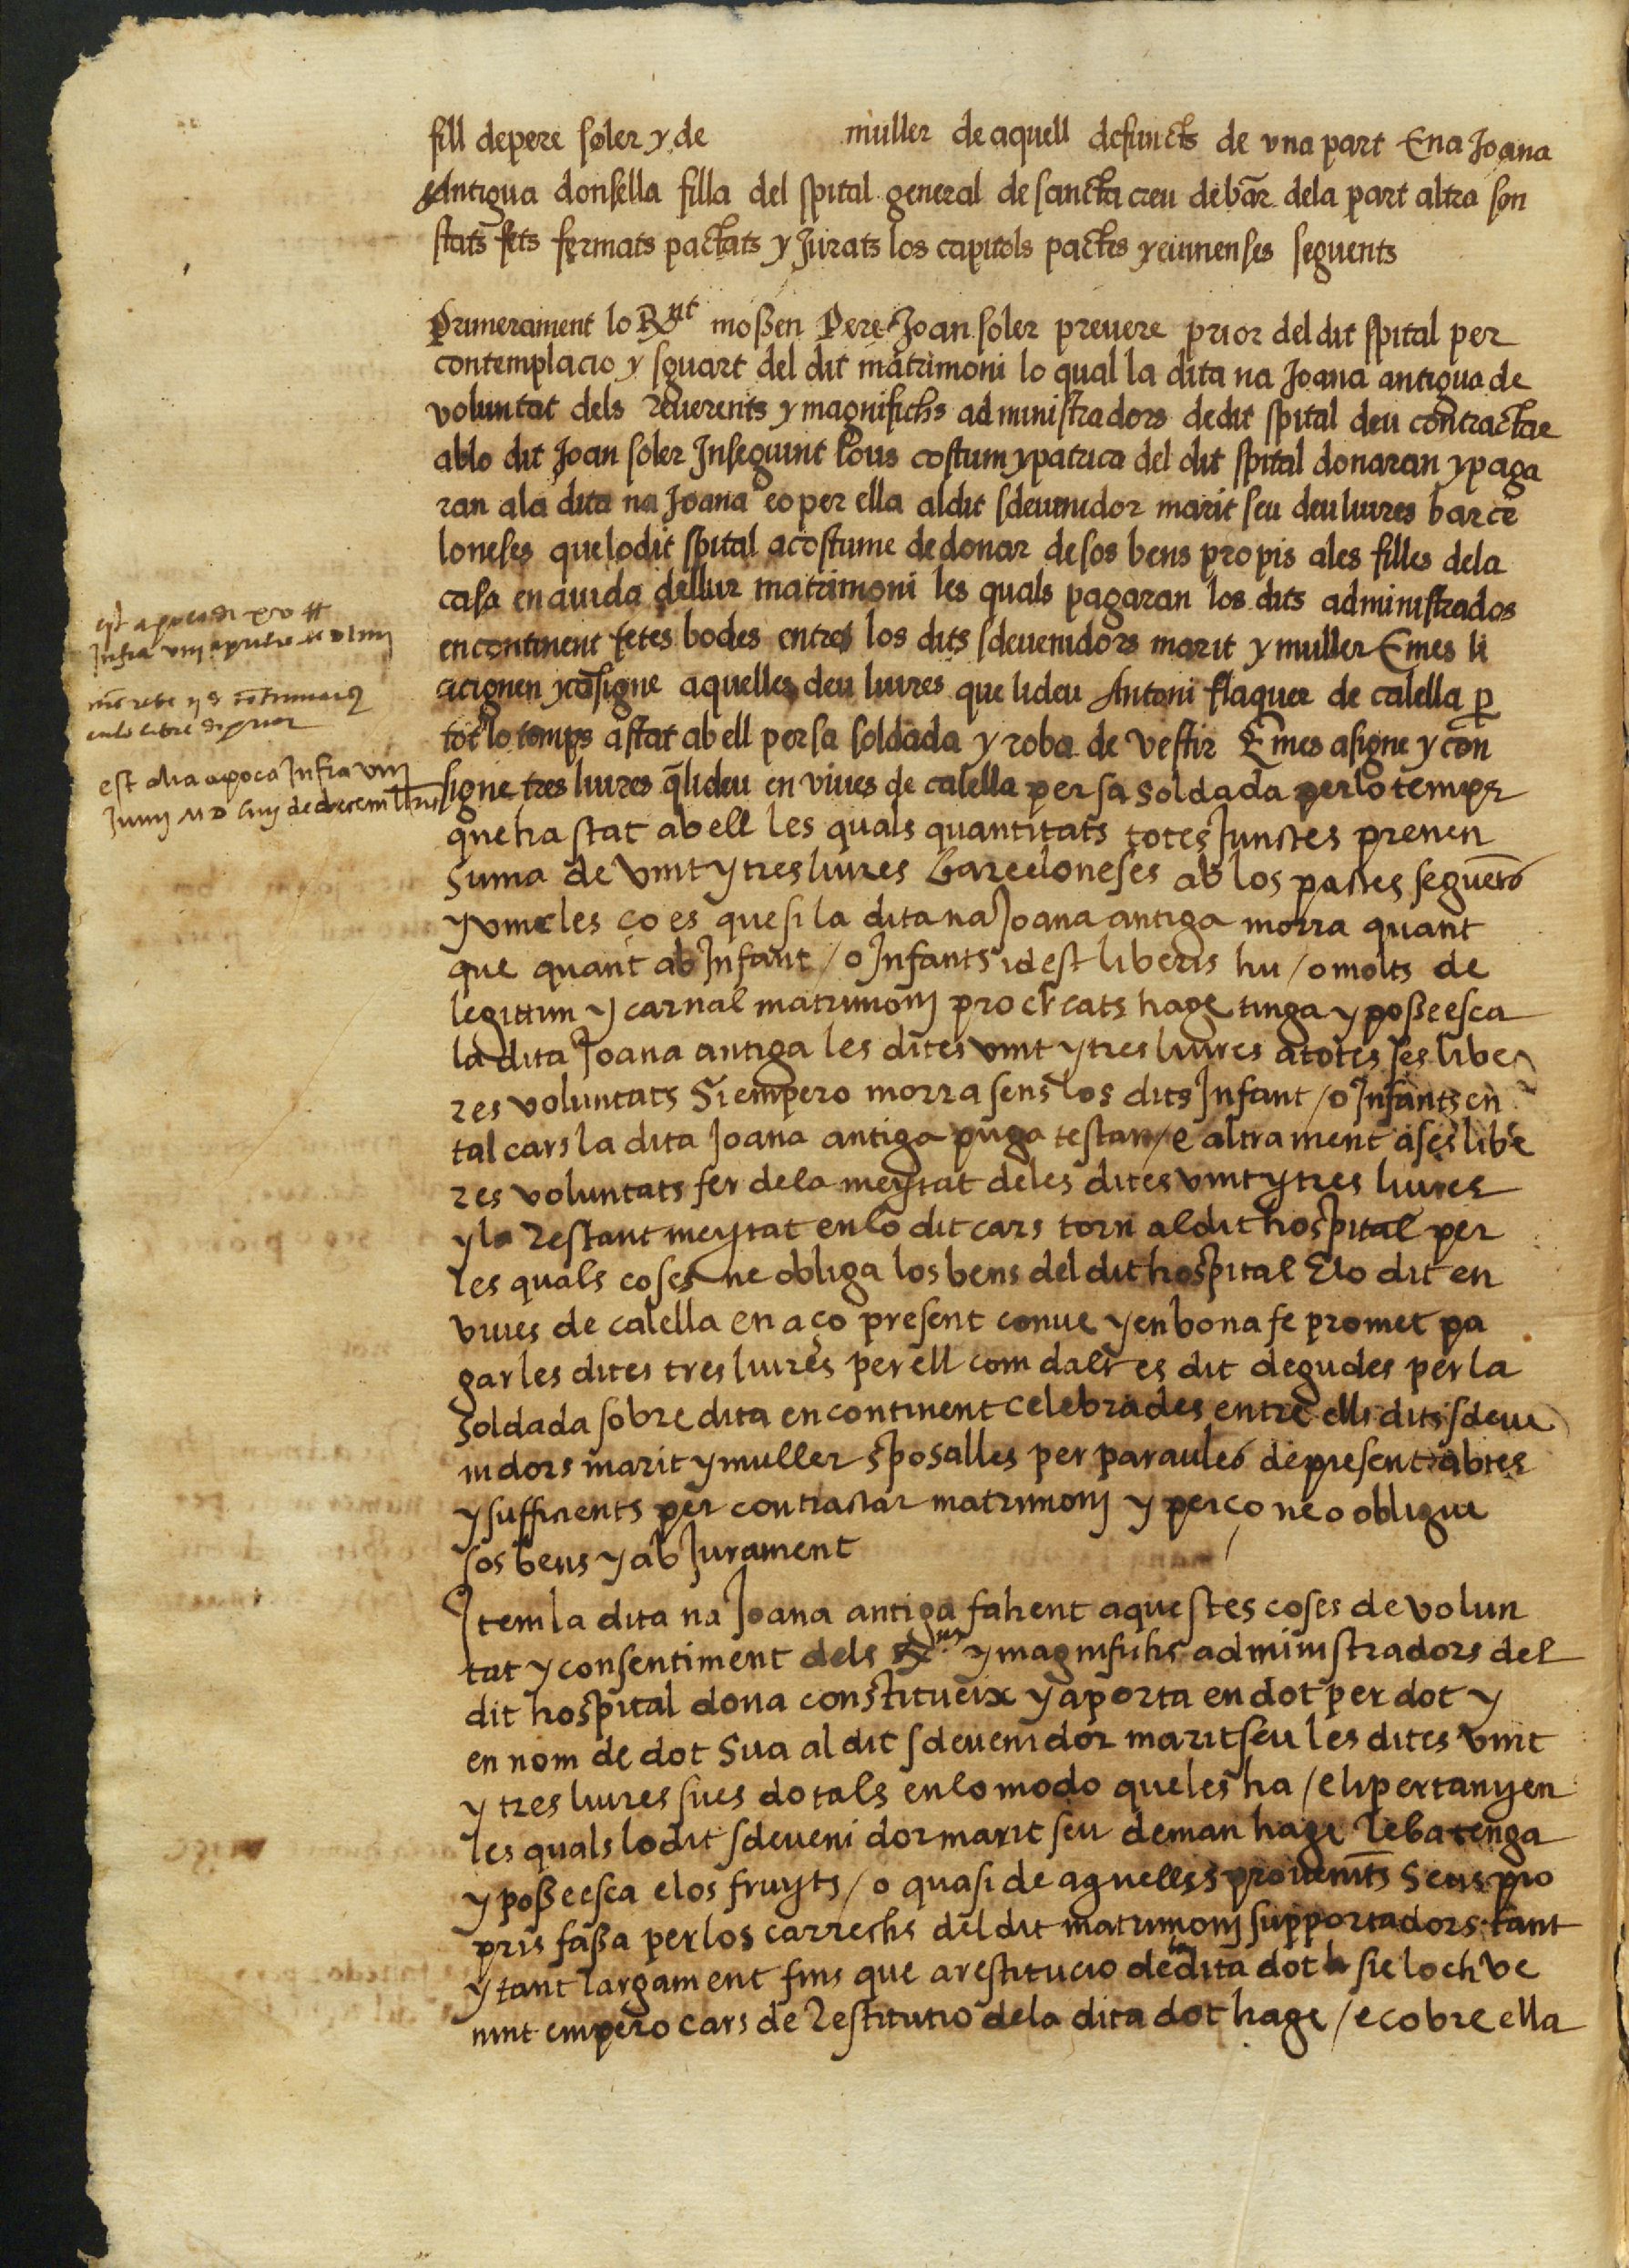 fill de pere soler y de muller de aquell defuncts de vna part E na Joana
Antigua donsella filla del spital general de sancta creu de bar. dela part altra son
stats fets fermats pactats y jurats los capitols pactes y seguents
Primerament lo Rnt moßen Pere Joan soler preuere prior del dit spital per
contemplacio y sguart del dit matrimoni lo qual la dita na Joana antigua de
voluntat dels reuerents y magnifichs administradors de dit spital deu contractar
ablo dit Joan soler Inseguint lo us costum y patrica del dit spital donaran y paga
ran ala dita na Joana eo per ella al dit sdeuenidor marit seu deu liures barce
loneses que lo dit spital acostume de donar de sos bens propis ales filles dela
casa en auida de llur matrimoni les quals pagaran los dits administrados
encontinent fetes bodes entre los dits sdeuenidors marit y muller E mes li
acignen y cōsigne aquelles deu liures que li deu Antoni flaquer de calella p
tot lo temps a stat ab ell per sa soldada y roba de vestir E mes asigne y con
signe tres liures q̄ li deu en viues de calella per sa soldada per lo temps
que ha stat ab ell les quals quantitats totes Junctes prenen
suma de vint y tres liures Barceloneses ab los pactes seguēts
y vincles ço es que si la dita na Joana antiga morra quant
que quant ab Infant / o Infants id est liberis hu / o molts de
legittim y carnal matrimonj procreats hage tinga y poßeesca
la dita Joana antiga les dites vint y tres liures a totes ses libe
res voluntats Si empero morra sens los dits Infant / o Infants en
tal cars la dita Joana antiga puga testar / e altrament a ses libe
res voluntats fer dela meytat deles dites vint y tres liures
y la restant meytat en lo dit cars torn al dit hospital per
les quals coses ne obliga los bens del dit hospital E lo dit en
viues de calella en aço present conue y en bona fe promet pa
gar les dites tres liures per ell com dalt es dit degudes per la
soldada sobre dita encontinent celebrades entre ells dits sdeue
nidors marit y muller sposalles per paraules de present abtes
y sufficients per contractar matrimonj y per ço ne o obligue
sos bens y ab Jurament
Item la dita na Joana antiga fahent aquestes coses de volun
tat y consentiment dels Rts y magnifichs administradors del
dit hospital dona constitueix y aporta en dot per dot y
en nom de dot sua al dit sdeuenidor marit seu les dites vint
y tres liures sues dotals en lo modo que les ha / e li pertanyen
les quals lo dit sdeuenidor marit seu deman hage reba tenga
y poßeesca e los fruyts / o quasi de aquelles prouenīts seus pro
pris faßa per los carrechs del dit matrimonj supportadors tant
y tant largament fins que a restitucio de la dita dot sie loch ve
nint empero cars de restitutio dela dita dot hage / e cobre ella
est alia apoca Infra viij
Junij MD Liiij de decembris